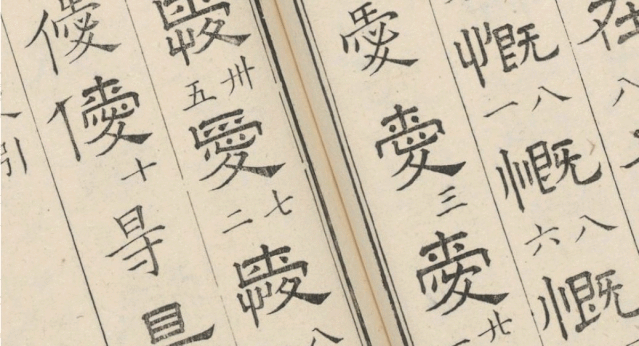 慨八一慨八六慨
愛愛三愛
愛卅五愛七二愛
僾僾十㝵